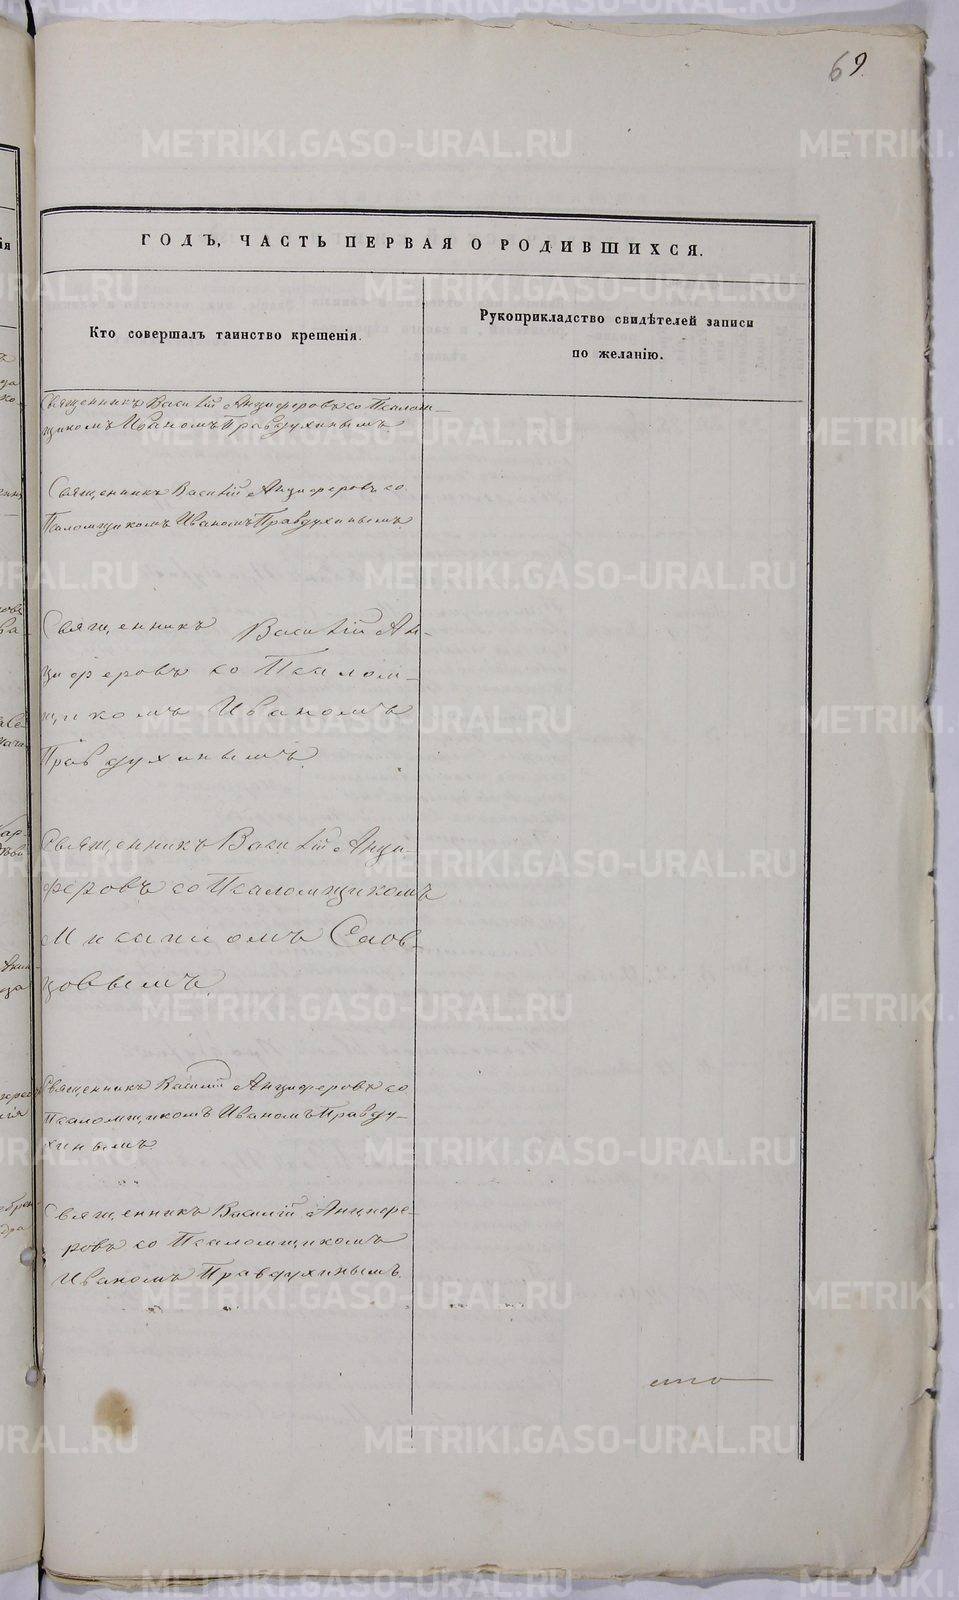 69
ГОДЪ, ЧАСТЬ ПЕРВАЯ О РОДИВШИХСЯ.
Кто совершалъ таинство крещенія.
Рукоприкладство свидѣтелей записи
по желанію.
Священникъ Василій Анциферовъ со Псалом-
щикомъ Иваномъ Правдухинымъ
Священникъ Василій Анциферовъ со
Псаломщикомъ Иваномъ Правдухинымъ
Священникъ Василій Ан-
циферовъ со Псалом-
щикомъ Иваномъ
Правдухинымъ.
Священникъ Василій Анци-
феровъ со Псаломщикомъ
Мисаиломъ Слов-
цовымъ.
Священникъ Василій Анциферовъ со
Псаломщикомъ Иваномъ Правду-
хинымъ.
Священникъ Василій Анцифе-
ровъ со Псаломщикомъ
Иваномъ Правдухинымъ.
METRIKI.GASO-URAL.RU